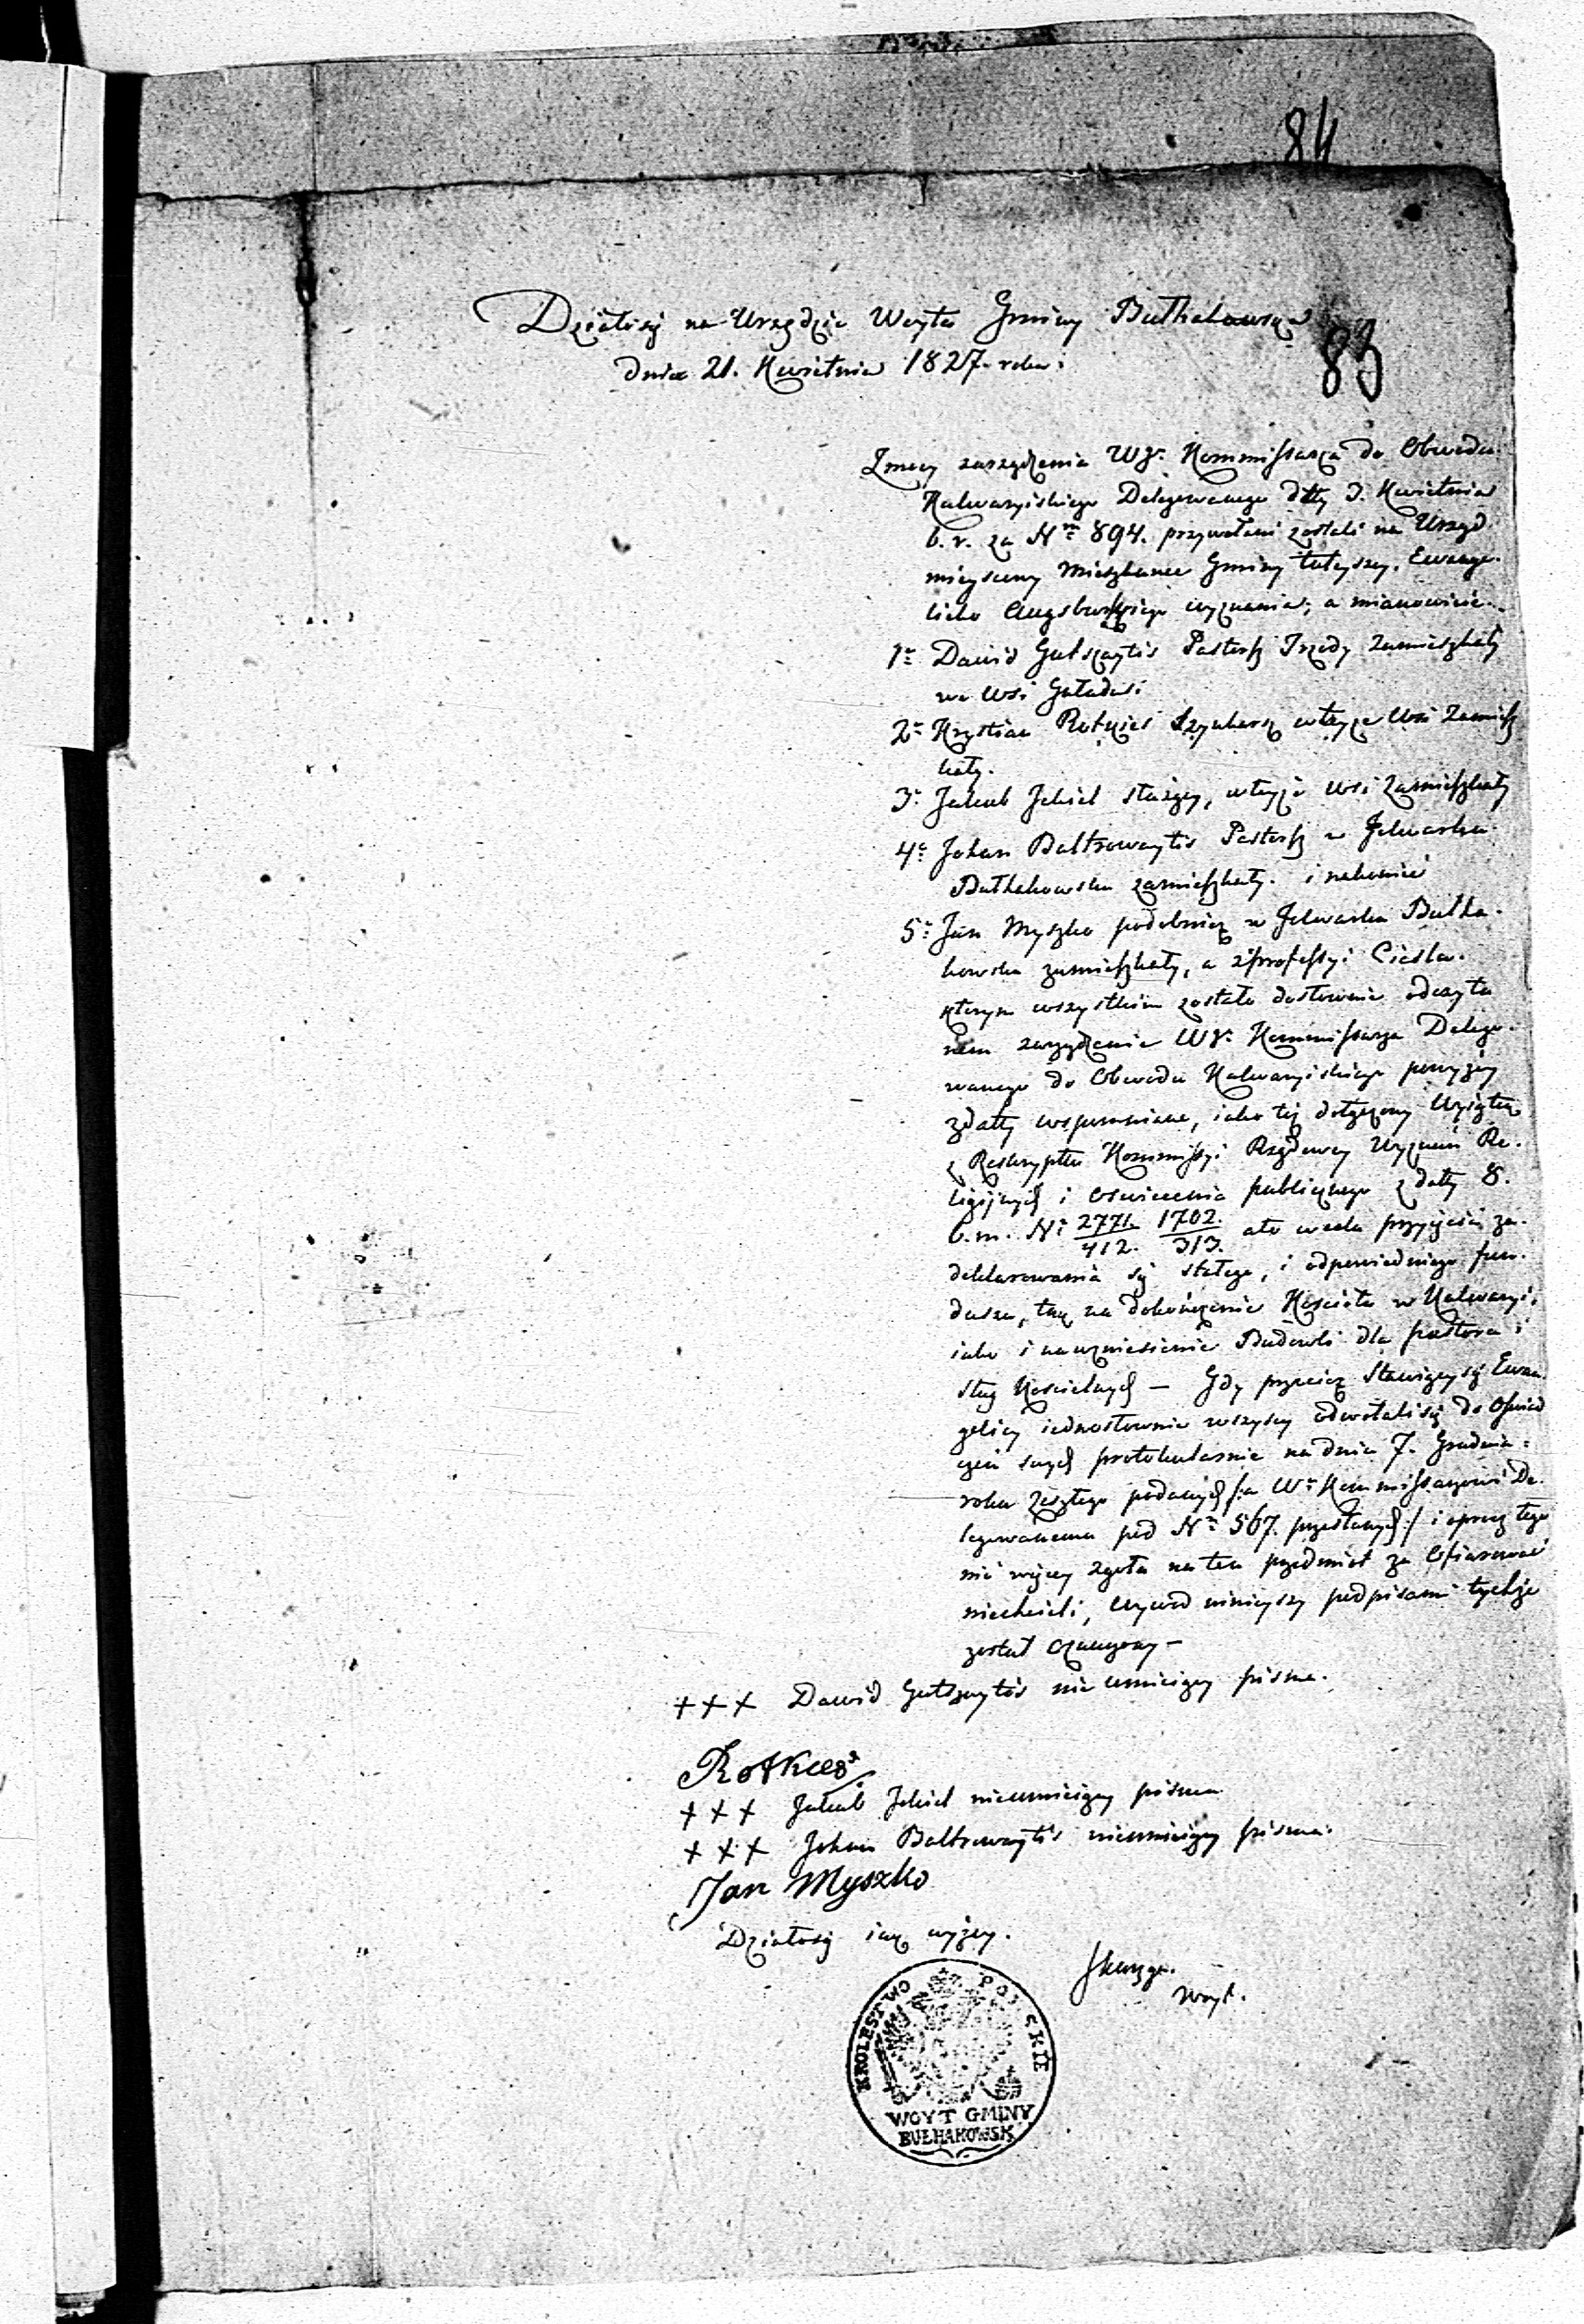 84
Działo się na Urzędzie Woyta Gminy Bułhakowsk
dnia 21. Kwietnia 1827. roku:
83
Z mocy zarządzenia WJ. Kommissarza do Obwodu
Kalwaryiskiego Delegowanego datty 3. Kwietnia
b. r. za Nrm 894. przywołani zostali na Urząd
mieyscowy Mieszkance Gminy tuteyszey, Ewange-
licko Augsburskiego wyznania; a mianowicie.
1e Dawid Gutszaytis Pasterz Trzody zamieszkały
we wsi Gułada:
2e Krystian Rotkies Szynkarz w teyże wsi Zamiesz
kały.
3e Jakub Jekiel starszy, w teyże wsi Zamieszkały
4e Johan Baltrowaytis Pasterz w Folwarku
Bułhakowsku zamieszkały. i nakoniec
5e Jan Myszko podobnież w Folwarku Bułha-
kowsku zamieszkały, a z professyi Cieśla.
którym wszystkim zostało dosłownie odczyta
nem zarządzenie WJ. Kommissarza Delego-
wanego do Obwodu Kalwaryiskiego powyżey
z datty wspomniane, iako też dołączony Wyiątek
z Reskryptu Kommissyi Rządowey Wyznań Re-
ligijnych i Oswiecenia publicznego z datty 8.
b. m. Nr 2771/412. 1702./313. a to w celu przyięcia za-
deklarowania się stałego, i odpowiedniego fun-
duszu, tak na dokończenie Kościoła w Kalwaryi,
iako i na wzniesienie Budowli dla pastora i
sług Kościelnych — Gdy przecież Stawiący się Ewan-
gelicy iednosłownie wszyscy odwołali się do Oświad
czeń swych protokularnie na dniu 7. Grudnia
roku Zeszłego podanych /:a Wu Kommissarzowi De-
legowanemu pod Nrm 567. przesłanych:/ i oprócz tego
nic więcey zgoła na ten przedmiot za ofiarować
niechcieli, wywód ninieyszy podpisami tychże
został Oznaczony —
+++ Dawid Gutszaytis nie umieiący pisma.
Rotkies
+++ Jakub Jekiel nieumieiący pisma
+++ Johan Baltrowaytis nieumieiący pisma.
Jan Myszko
Działo się iak wyżey.
Skarzga.
Woyt.
KROLESTWO POLSKIE
WOYT GMINY
BUŁHAKOWSK